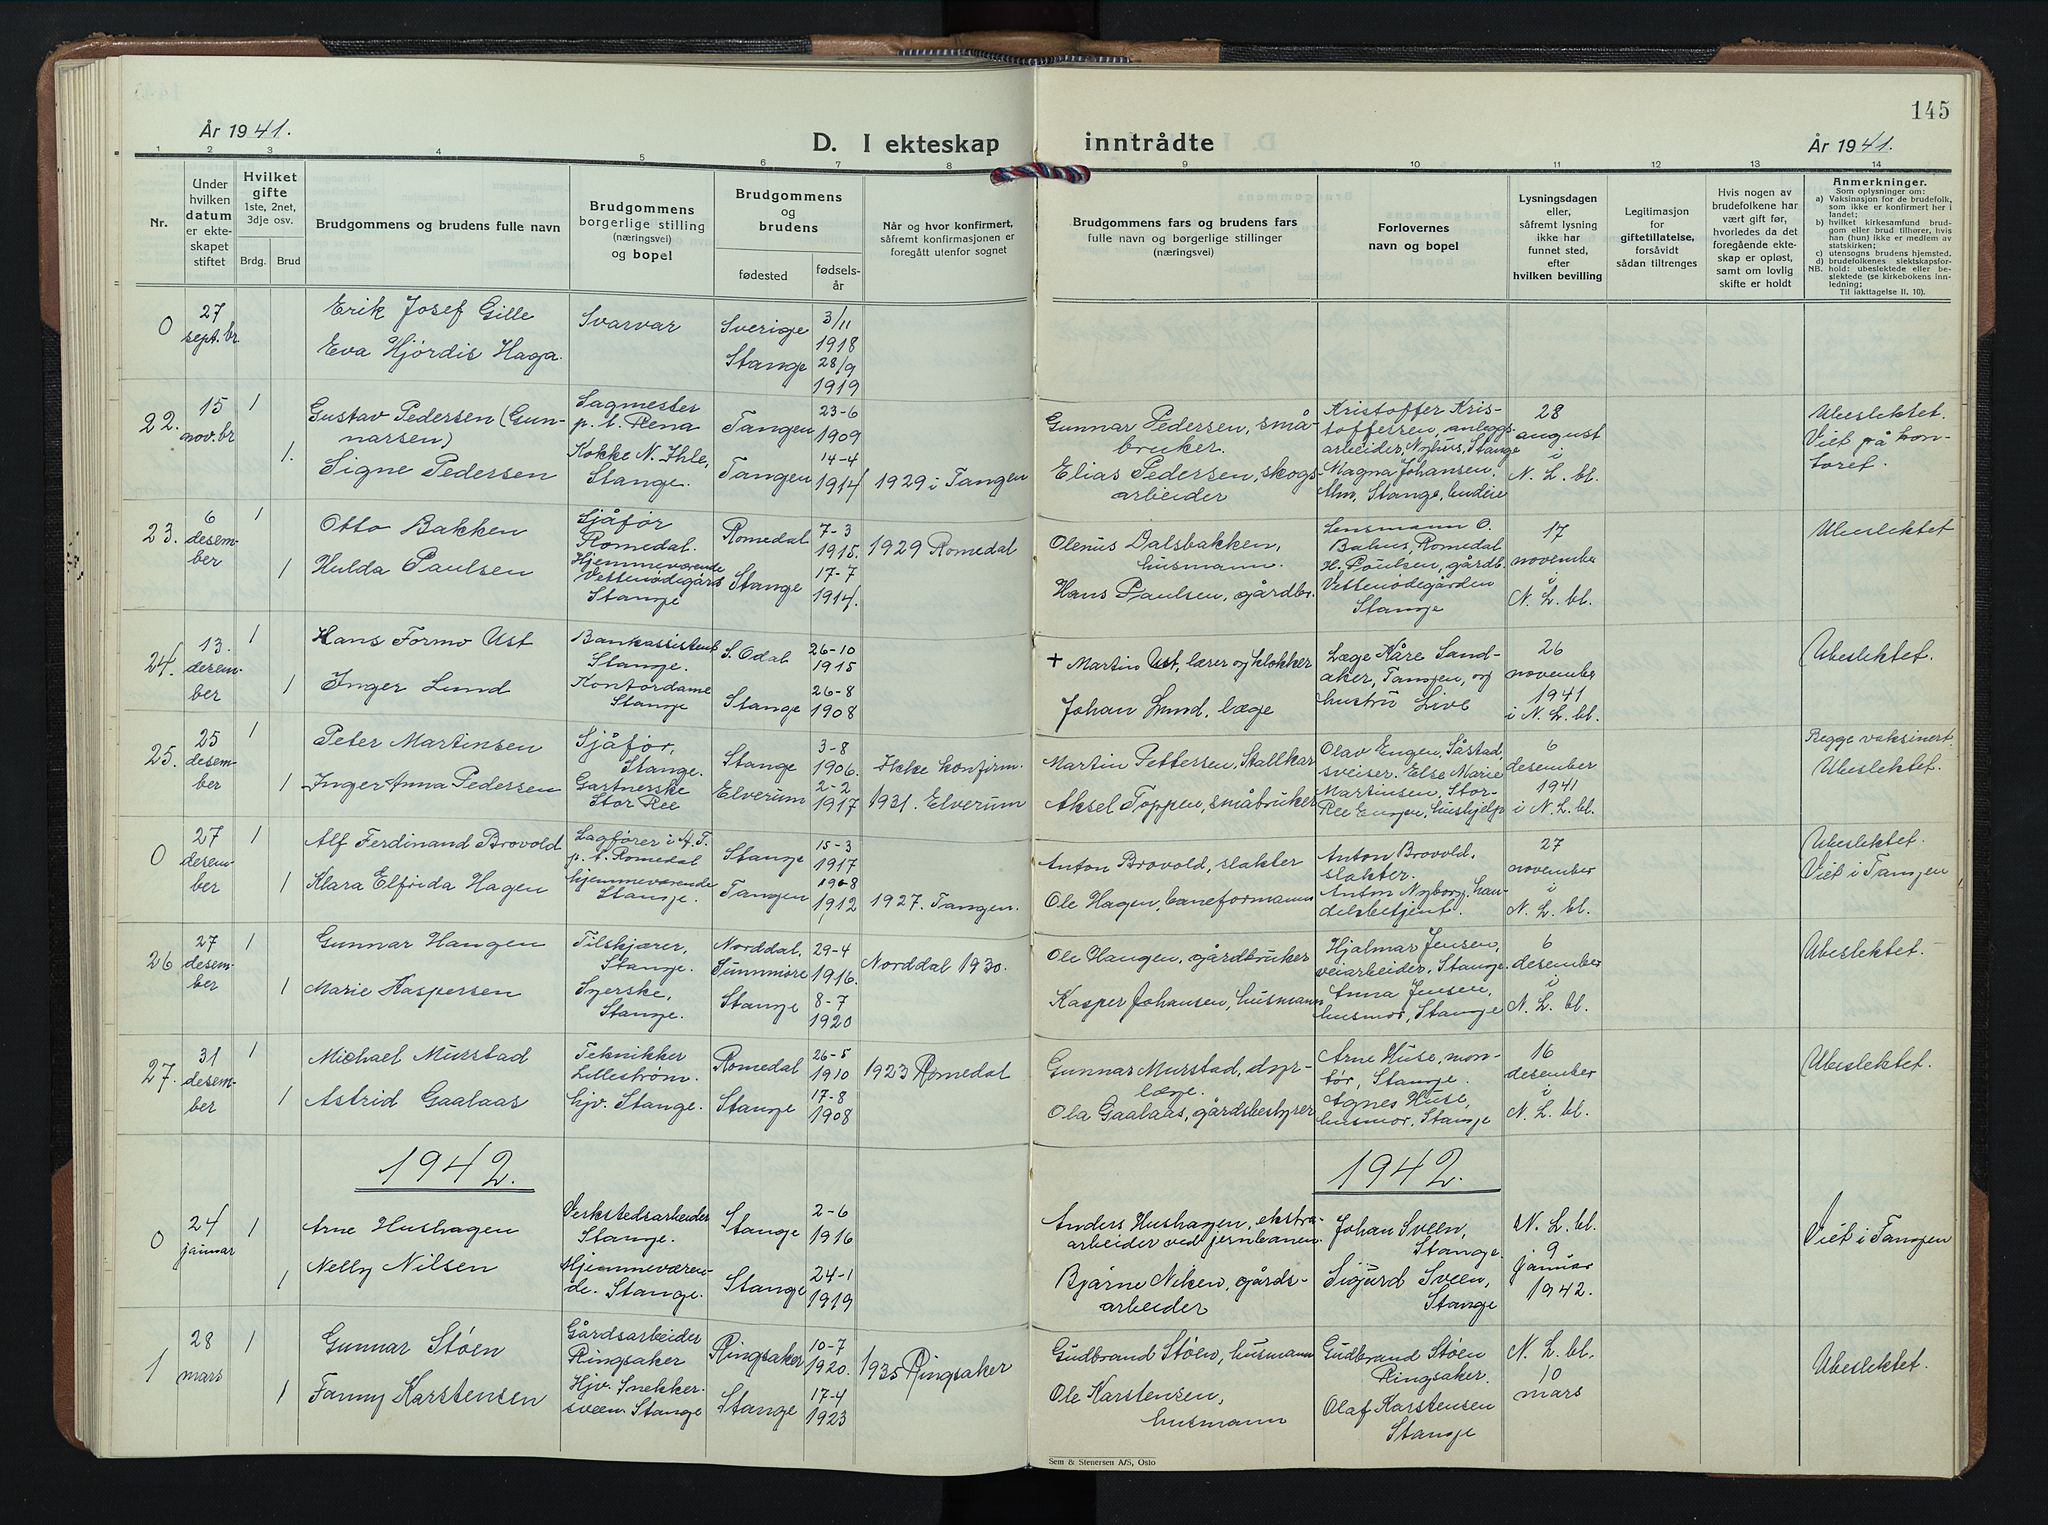 145
År 1941.
D. I ekteskap inntrådte
År 1941.
1 2 3 4 5 6 7 8 9 10 11 12 13 14
Nr.
Under hvilken datum er ekteskapet stiftet
Hvilket gifte
1ste, 2net, 3dje osv.
Brdg. Brud
Brudgommens og brudens fulle navn
Brudgommens
borgerlige stilling
(næringsvei)
og bopel
Brudgommens
og
brudens
fødested
fødsels-
år
Når og hvor konfirmert,
såfremt konfirmasjonen er
foregått utenfor sognet
Brudgommens fars og brudens fars
fulle navn og børgerlige stillinger
(næringsvei)
Forlovernes
navn og bopel
Lysningsdagen
eller,
såfremt lysning
ikke har
funnet sted,
efter
hvilken bevilling
Legitimasjon
for
giftetillatelse,
forsåvidt
sådan tiltrenges
Hvis nogen av
brudefolkene har
vært gift før,
hvorledes da det
foregående ekte-
skap er opløst,
samt om lovlig
skifte er holdt
Anmerkninger.
Som oplysninger om:
a) Vaksinasjon for de brudefolk,
som ikke er konfirmert her i
landet;
b) hvilket kirkesamfund brud-
gom eller brud tilhører, hvis
han (hun) ikke er medlem av
statskirken;
c) utensogns brudens hjemsted.
d) brudefolkenes slektskapsfor-
NB. hold: ubeslektede eller be-
slektede (se kirkebokens inn-
ledning;
Til iakttagelse II. 10).
0
27
sept.br
Erik Josef Gille
Eva Hjördis Haga.
Svarvar
Sverige
3/11
1918
Stange
28/9
1919
22.
15
nov.br
1
1.
Gustav Pedersen (Gun-
narsen)
Signe Pedersen
Sagmester
p.t. Rena
Kokke N. Ihle,
Stange.
Tangen
23-6
1909
Tangen
14-4
1914
1929 i Tangen
Gunnar Pedersen, små-
bruker.
Elias Pedersen, skogs-
arbeider
Kristoffer Kris-
toffersen, anleggs-
arbeider, Nyhus, Stange
Magna Johansen,
Alm, Stange, budeie
28
august
i
N. L. bl.
Ubeslektet.
Viet på kon-
toret.
23.
6
desem-
ber
1
1
Otto Bakken
Hulda Paulsen
Sjåfør
Romedal.
Hjemmeværende
Stange
Romedal
7-3
1915.
Stange
17-7
1914.
1929 Romedal
Olenus Dalsbakken,
husmann.
Hans Paulsen, gårdbr.
Lensmann O.
Bahus, Romedal
H. Poulsen, gårdb.
Vettenødegården
Stange
17
november
i
N. L. bl.
Ubeslektet
24.
13.
desem-
ber
1
1
Hans Formo Ust
Inger Lund
Bankassistent
Stange.
Kontordame
Stange
S. Odal
26-10
1915
Stange
26-8
1908
+ Martin Ust, lærer og klokker
Johan Lund, læge
Læge Kåre Sand-
aker, Tangen, og
hustru Live
26
november
1941
i N. L. bl.
Ubeslektet.
25.
25
desem-
ber
1
1
Peter Martinsen
Inger Anna Pedersen
Sjåfør,
Stange.
Gartnerske
Stor Ree
Stange
3-8
1906.
Elverum
2-2
1917
Ikke konfirm.
1931. Elverum
Martin Pettersen, Stallkar
Aksel Toppen, småbruker
Olav Engen, Såstad,
sveiser. Else Marie
Martinsen, Stor-
Ree Engen, hushjelp
6
desember
1941
i N. L. bl.
Begge vaksinert.
Ubeslektet.
0
27
desem-
ber
1
1
Alf Ferdinand Brovold
Klara Elfrida Hagen
Lagfører i A.T.
p.t. Romedal
hjemmeværende
Stange.
Stange
15-3
1917
Tangen
1912
1927. Tangen.
Anton Brovold, slakter
Ole Hagen, baneformann
Anton Brovold,
slakter.
Anton Nyborg, han-
delsbetjent.
27
november
i
N. L. bl.
Ubeslektet.
Viet i Tangen
26
27
desem-
ber
1
1
Gunnar Hangen
Marie Kaspersen
Tilskjærer,
Stange.
Syerske,
Stange.
Norddal,
Sunnmöre
29-4
1916.
Stange
8-7
1920
Norddal 1930.
Ole Hangen, gårdbruker
Kasper Johansen, husmann
Hjalmar Jensen,
veiarbeider, Stange.
Anna Jensen,
husmor, Stange
6
desember
i
N. L. bl.
Ubeslektet.
27.
31
desem-
ber
1
1
Michael Murstad
Astrid Gaalaas
Teknikker
Lillestrøm.
hjv. Stange.
Romedal
26-5
1910
Stange
17-8
1908
1923 Romedal
Gunnar Murstad, dyr-
læge.
Ola Gaalaas, gårdsbestyrer
Arne Huse, mon-
tør, Stange.
Agnes Huse,
husmor, Stange
16
desember
i
N. L. bl.
Ubeslektet.
1942.
1942.
0
24
januar
1
1
Arne Hushagen
Nelly Nilsen
Verkstedsarbeider
Stange.
Hjemmeværen-
de. Stange.
Stange
2-6
1916
Stange
24-1
1919
Anders Hushagen, ekstra-
arbeider ved jernbanen
Bjarne Nilsen, gårds-
arbeider
Johan Sveen,
Stange.
Sigurd Sveen,
Stange
N. L. bl.
9
januar
1942.
Viet i Tangen
1
28
mars
1
1
Gunnar Støen
Fanny Karstensen
Gårdsarbeider
Ringsaker
Hjv. Snekker-
sveen Stange
Ringsaker
10-7
1920.
Stange
17-4
1923
1935 Ringsaker
Gudbrand Støen, husmann
Ole Karstensen,
husmann
Gudbrand Støen
Ringsaker.
Olaf Karstensen
Stange
N. L. bl.
10
mars
Ubeslektet.
Sem & Stenersen A/S, Oslo